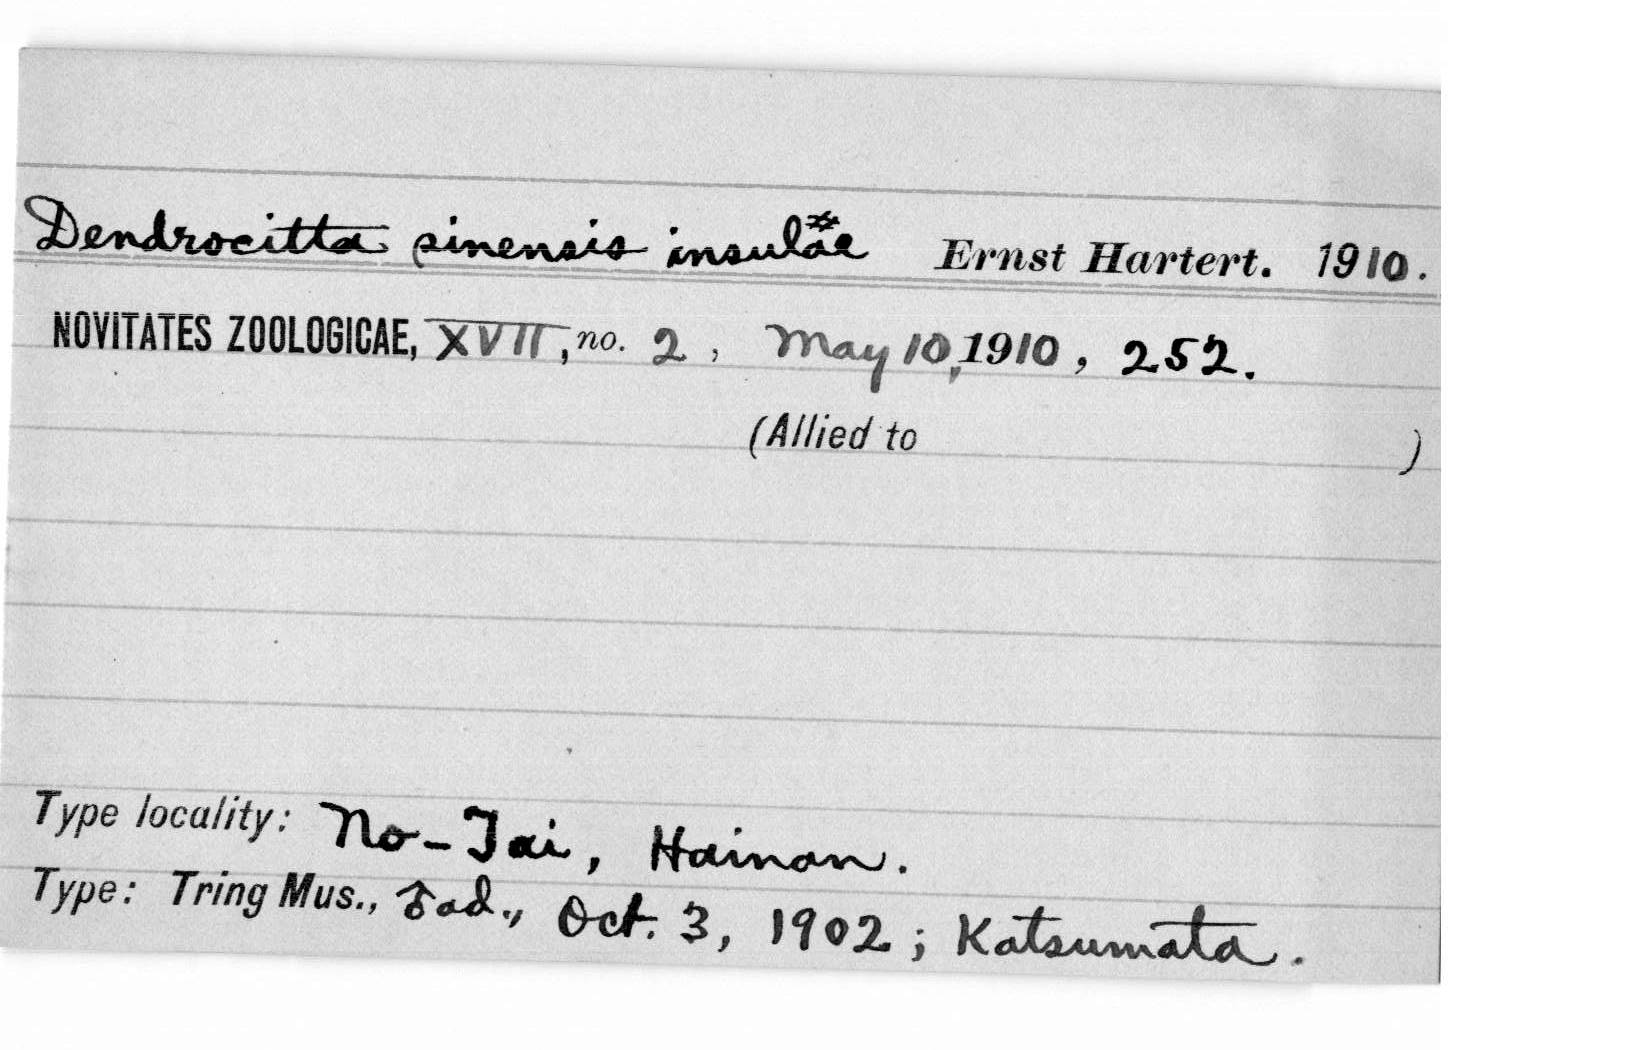 Dendrocitta sinensis insulae Ernst Hartert. 1910.
NOVITATES ZOOLOGICAE, XVII, no. 2, May 10, 1910, 252.
(Allied to )
Type locality: No-Tai, Hainan.
Type: Tring Mus., ♂ ad., Oct. 3, 1902; Katsumata.